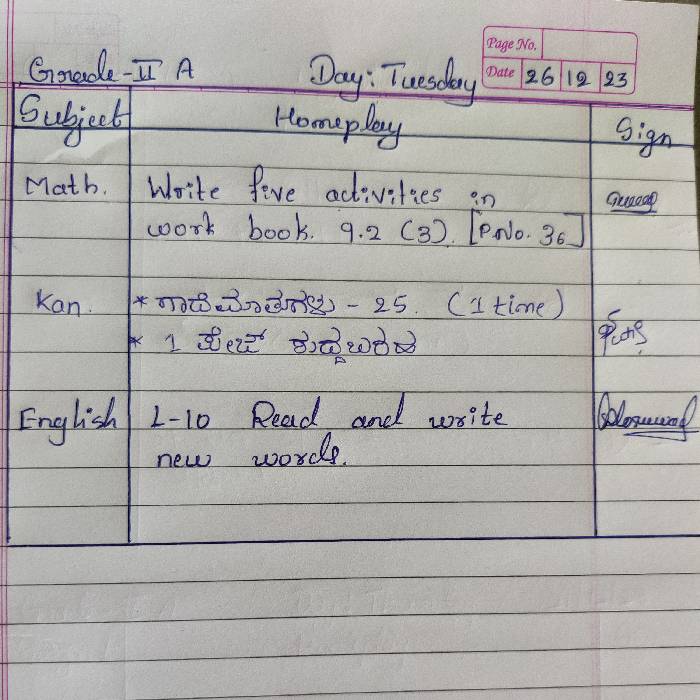 Page No.
Grade-II A Day: Tuesday Date 26 12 23
Subject Homeplay Sign
Math. Write five activities in
work book. 9.2 (3). [P.No. 36]
Kan. * ಗಾದೆಮಾತುಗಳು - 25. (1 time)
* 1 ಪೇಜ್ ಶುದ್ಧಬರಹ
English L-10 Read and write
new words.